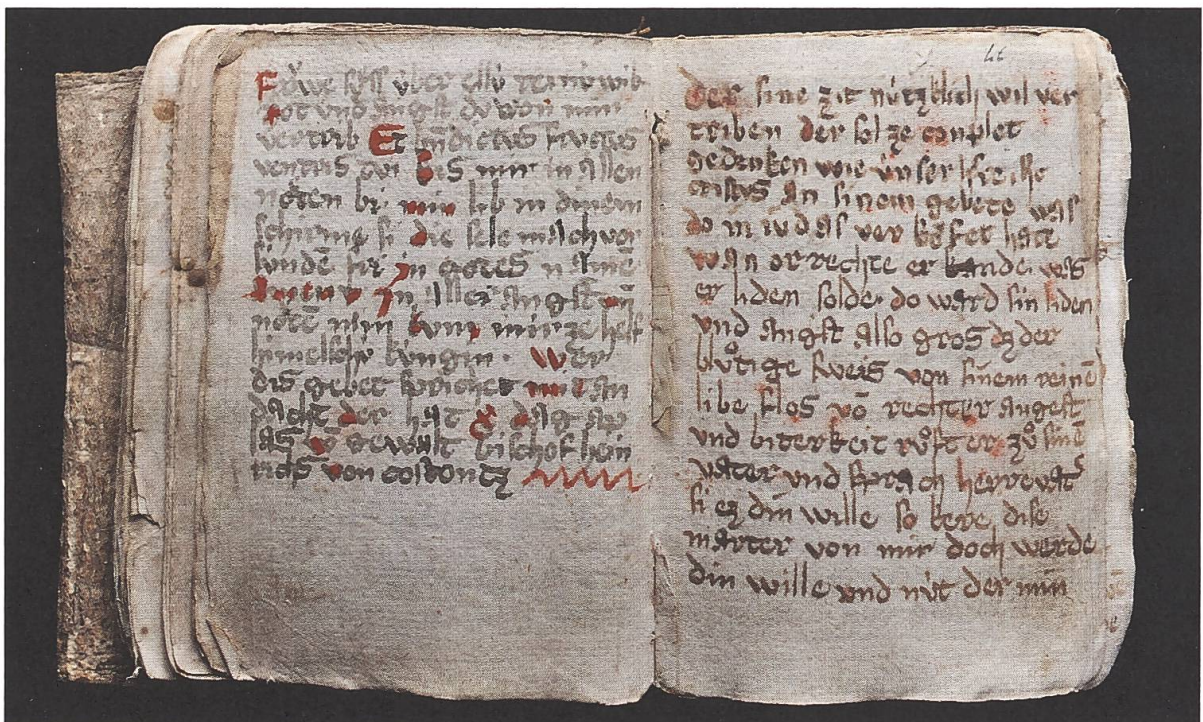 Fröwe süss über ellü reinü wib
not und angst du von mir
vertrib Et bn̄dictus fructus
ventris tui bis mir in allen
nöten bi min lib in dinem
schirme si die sele min ich vor
sunde fri in gotes namē
in aller angst un̄
nötē nim kum mir ze helf
himelsche küngin. Wer
dis gebet sprichet mit an
dacht der hat dag ap
las vō gewalt bischof hein
richs von costentz
46
Der sine zit nützklich wil ver
triben der sol ze conplet
gedenken wie ünser herre ihs
cristus an sinem gebete was
do in iudas ver köfet hate
wan er rechte er kande was
er liden solde. do ward sin liden
und angst also gros dz der
blůtige sweis von sinem reinē
libe flos vō rechter angest
und biterkeit růft er zů sinē
vater und sprach herre vatr̄
si ez din wille so kere dise
marter von mir doch werde
din wille und nüt der min